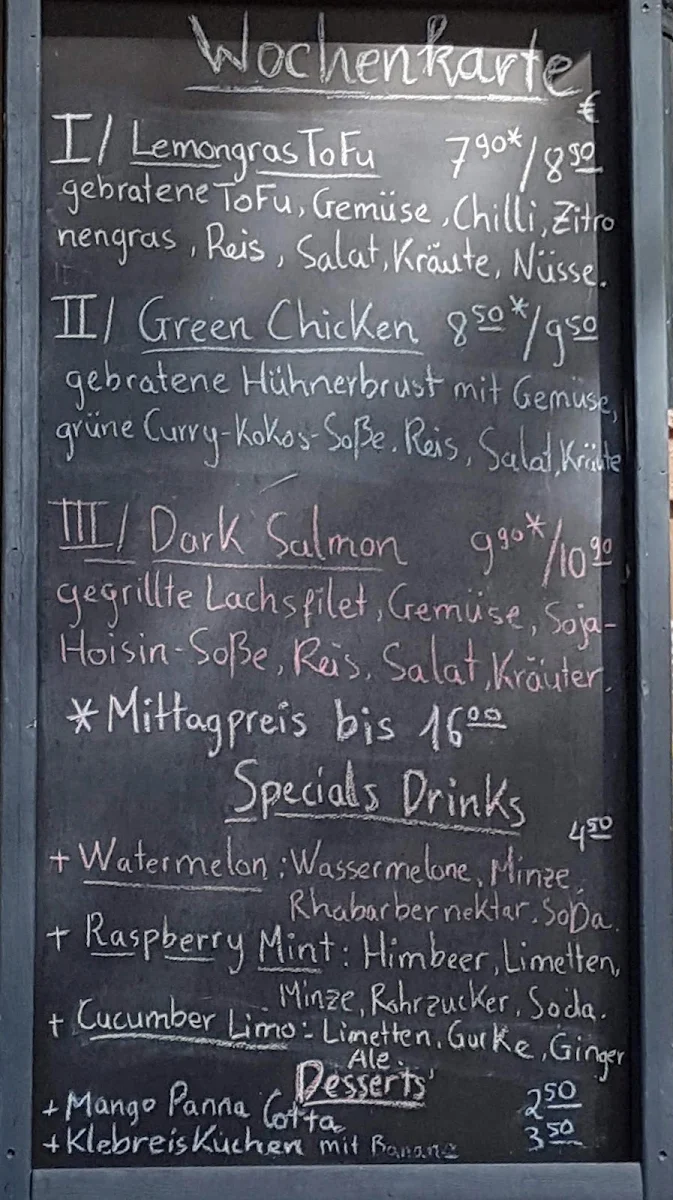 Wochenkarte
€
I/ LemongrasToFu 7 90*/8 50
gebratene ToFu, Gemüse, Chilli, Zitro
nengras, Reis, Salat, Kräute, Nüsse.
II/ Green Chicken 8 50*/9 50
gebratene Hühnerbrust mit Gemüse,
grüne Curry-Kokos-Soße. Reis, Salat, Kräute
III/ Dark Salmon 9 90*/10 90
gegrillte Lachsfilet, Gemüse, Soja-
Hoisin-Soße, Reis, Salat, Kräuter.
*Mittagpreis bis 16 00
Specials Drinks
4 50
+ Watermelon: Wassermelone, Minze,
Rhabarbernektar. SoDa.
+ Raspberry Mint: Himbeer, Limetten,
Minze, Rohrzucker, Soda.
+ Cucumber Limo: Limetten, Gurke, Ginger
Ale.
Desserts
+ Mango Panna Cotta 2 50
+ KlebreisKuchen mit Banane 3 50